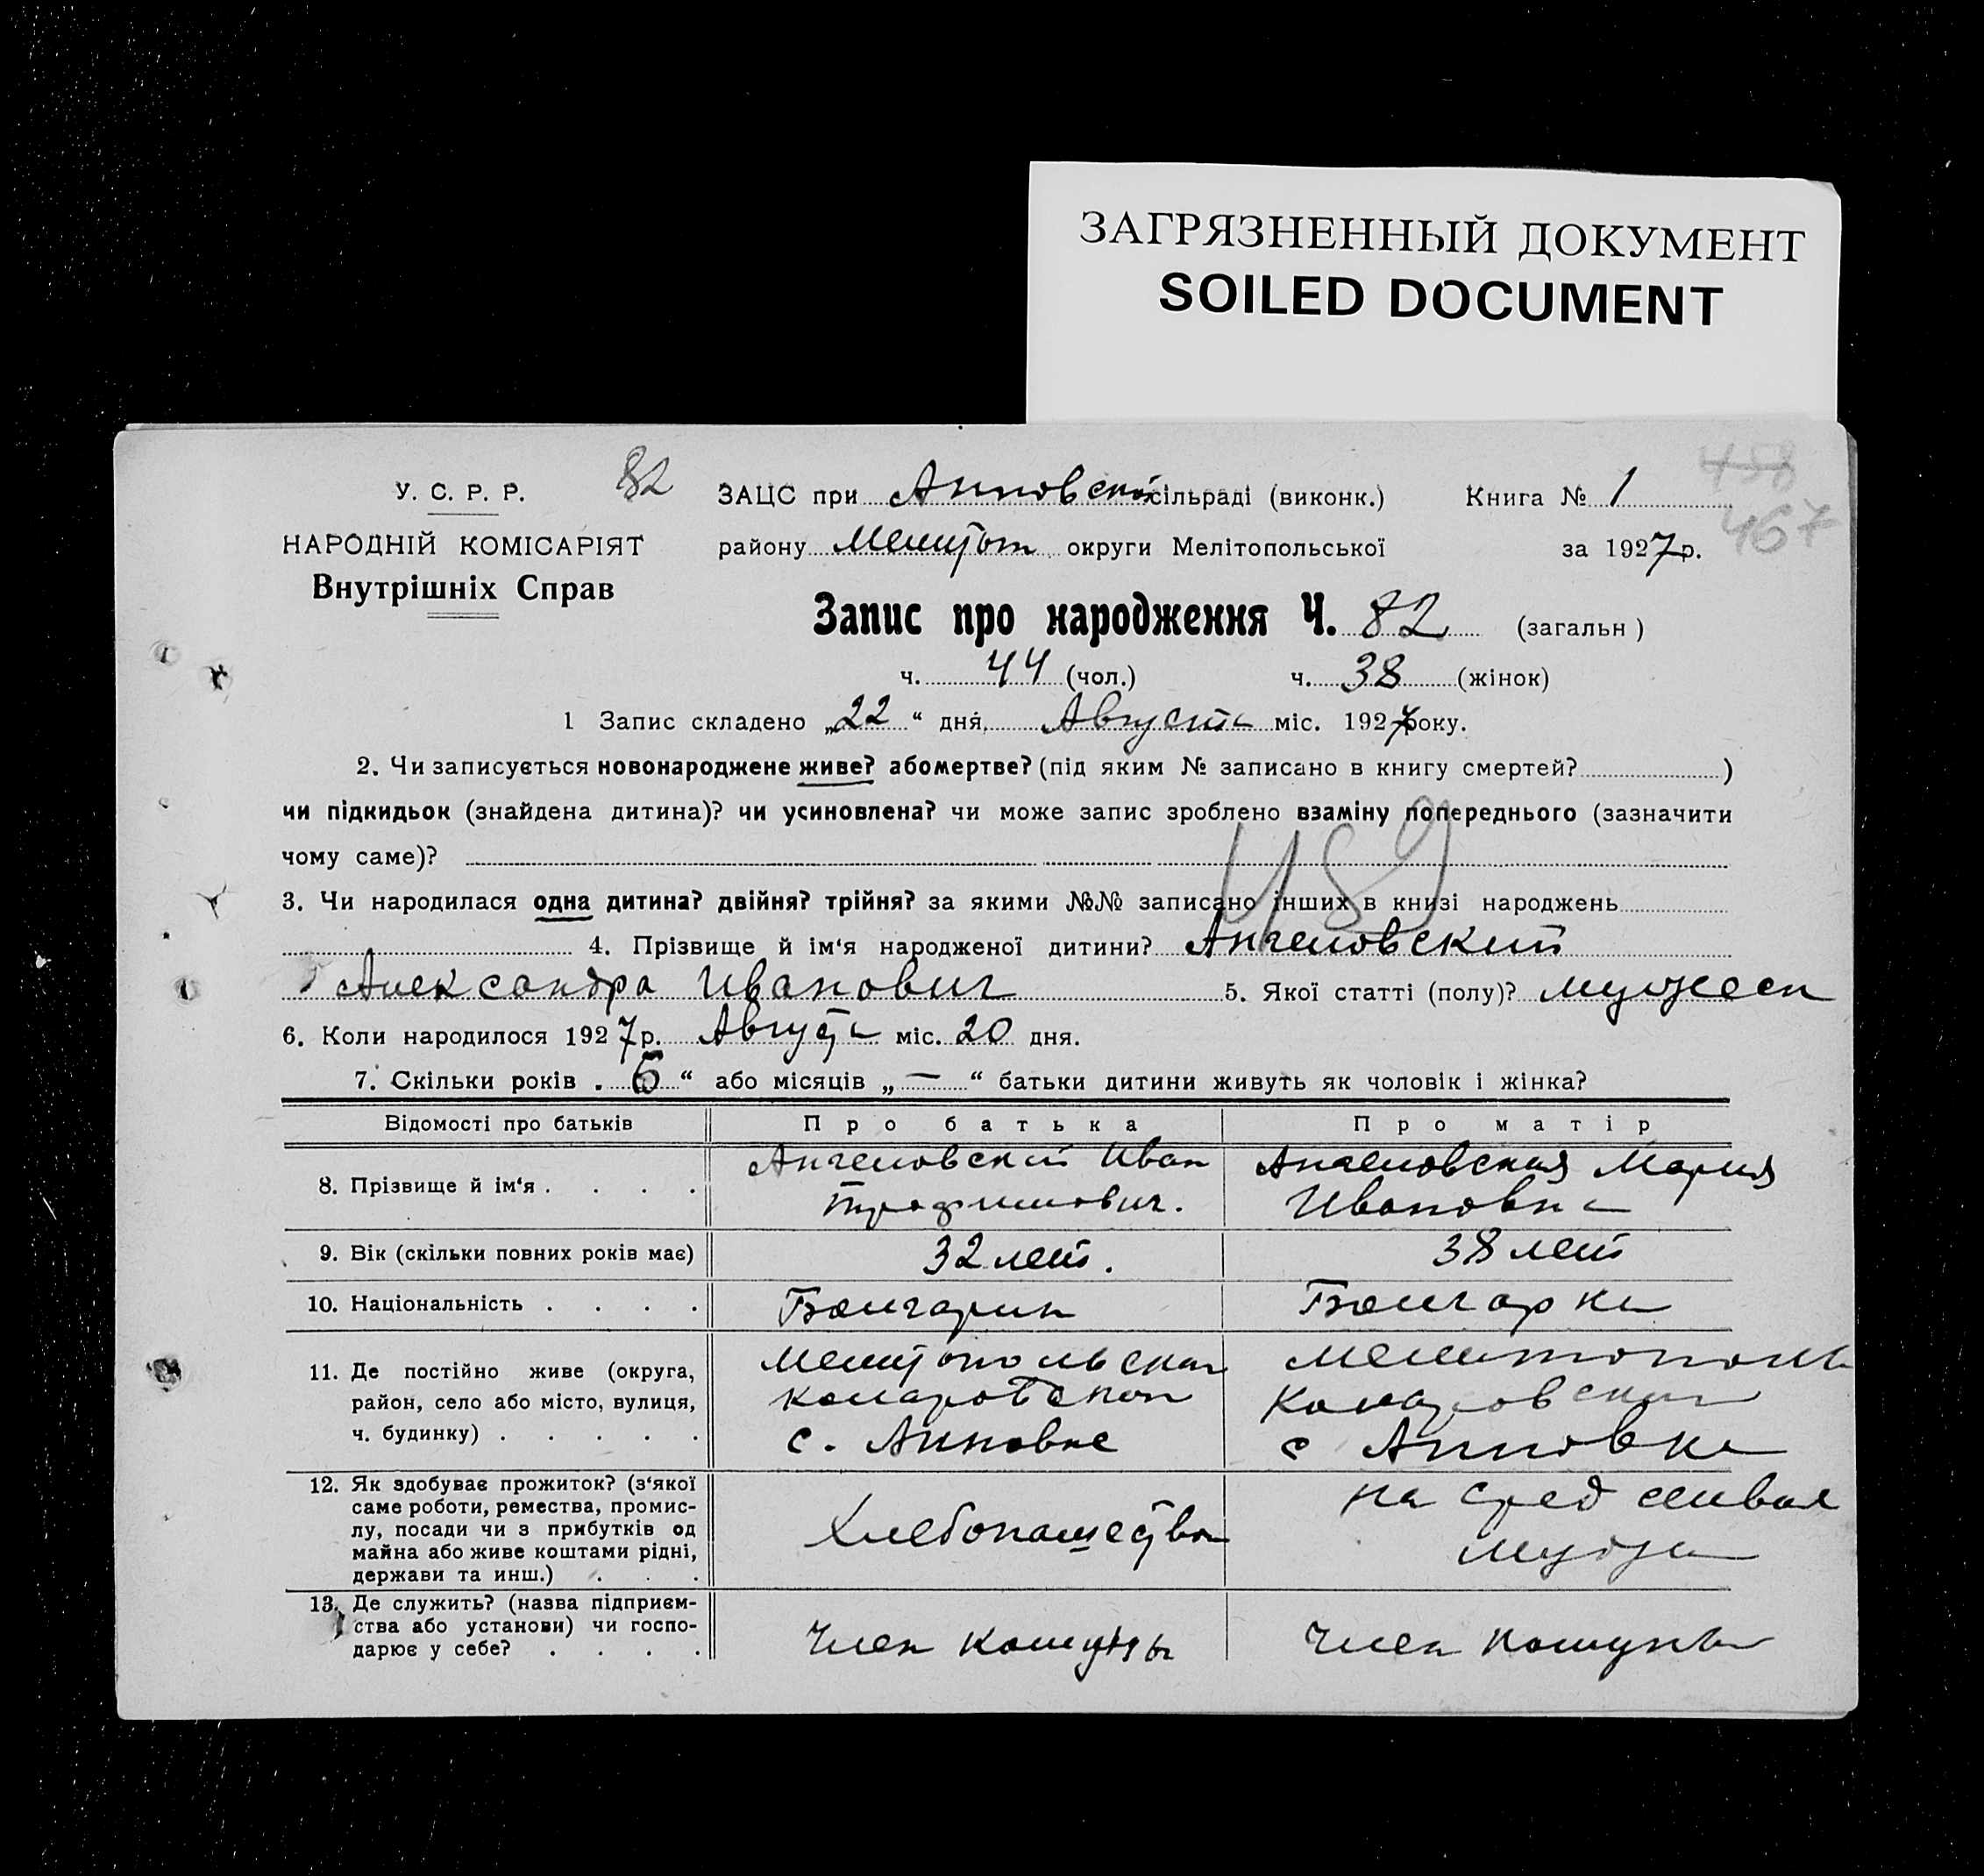 ЗАГРЯЗНЕННЫЙ ДОКУМЕНТ
SOILED DOCUMENT
458
467
У. С. Р. Р.
82
ЗАЦС при Анновской сільраді (виконк.)
Книга № 1
НАРОДНІЙ КОМІСАРІЯТ
району Мелитоп округи Мелітопольської
за 1927 р.
Внутрішніх Справ
Запис про народження Ч. 82 (загальн )
ч. 44 (чол.) ч. 38 (жінок)
1 Запис складено „22“ дня, Августа міс. 1927 року.
2. Чи записується новонароджене живе? або мертве? (під яким № записано в книгу смертей? )
чи підкидьок (знайдена дитина)? чи усиновлена? чи може запис зроблено взаміну попереднього (зазначити
чому саме)?
489
3. Чи народилася одна дитина? двійня? трійня? за якими №№ записано інших в книзі народжень
4. Прізвище й ім‘я народженої дитини? Ангеловский
Александра Иванович 5. Якої статті (полу)? мужеск
6. Коли народилося 1927 р. Августа міс. 20 дня.
7. Скільки років „6“ або місяців „—“ батьки дитини живуть як чоловік і жінка?
Відомості про батьків
Про батька
Про матір
8. Прізвище й ім‘я . . . .
Ангеловский Иван
Трафимович.
Ангеловская Мария
Ивановна
9. Вік (скільки повних років має)
32 лет.
38 лет
10. Національність . . . .
Болгарин
Болгарка
11. Де постійно живе (округа,
район, село або місто, вулиця,
ч. будинку) . . . . .
Мелитопольская
Комаровской
с. Анновке
Мелитополь
Комаровская
с Анновка
12. Як здобуває прожиток? (з‘якої
саме роботи, ремества, промис-
лу, посади чи з прибутків од
майна або живе коштами рідні,
держави та инш.) . . .
Хлебопашество
на сред
мужа
13. Де служить? (назва підприєм-
ства або установи) чи госпо-
дарює у себе? . . . .
Член комуны
Член комуны